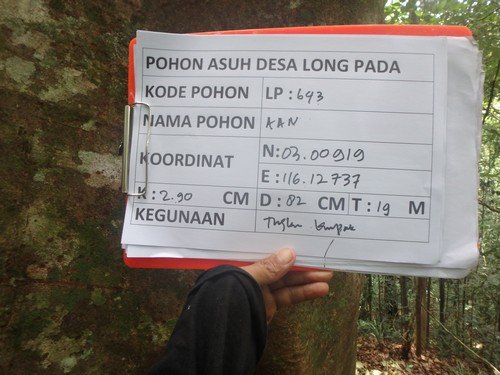 POHON ASUH DESA LONG PADA
KODE POHON LP : 693
NAMA POHON KAN
KOORDINAT N: 03.00919
E : 116.12737
K : 2.90 CM D : 82 CM T : 19 M
KEGUNAAN